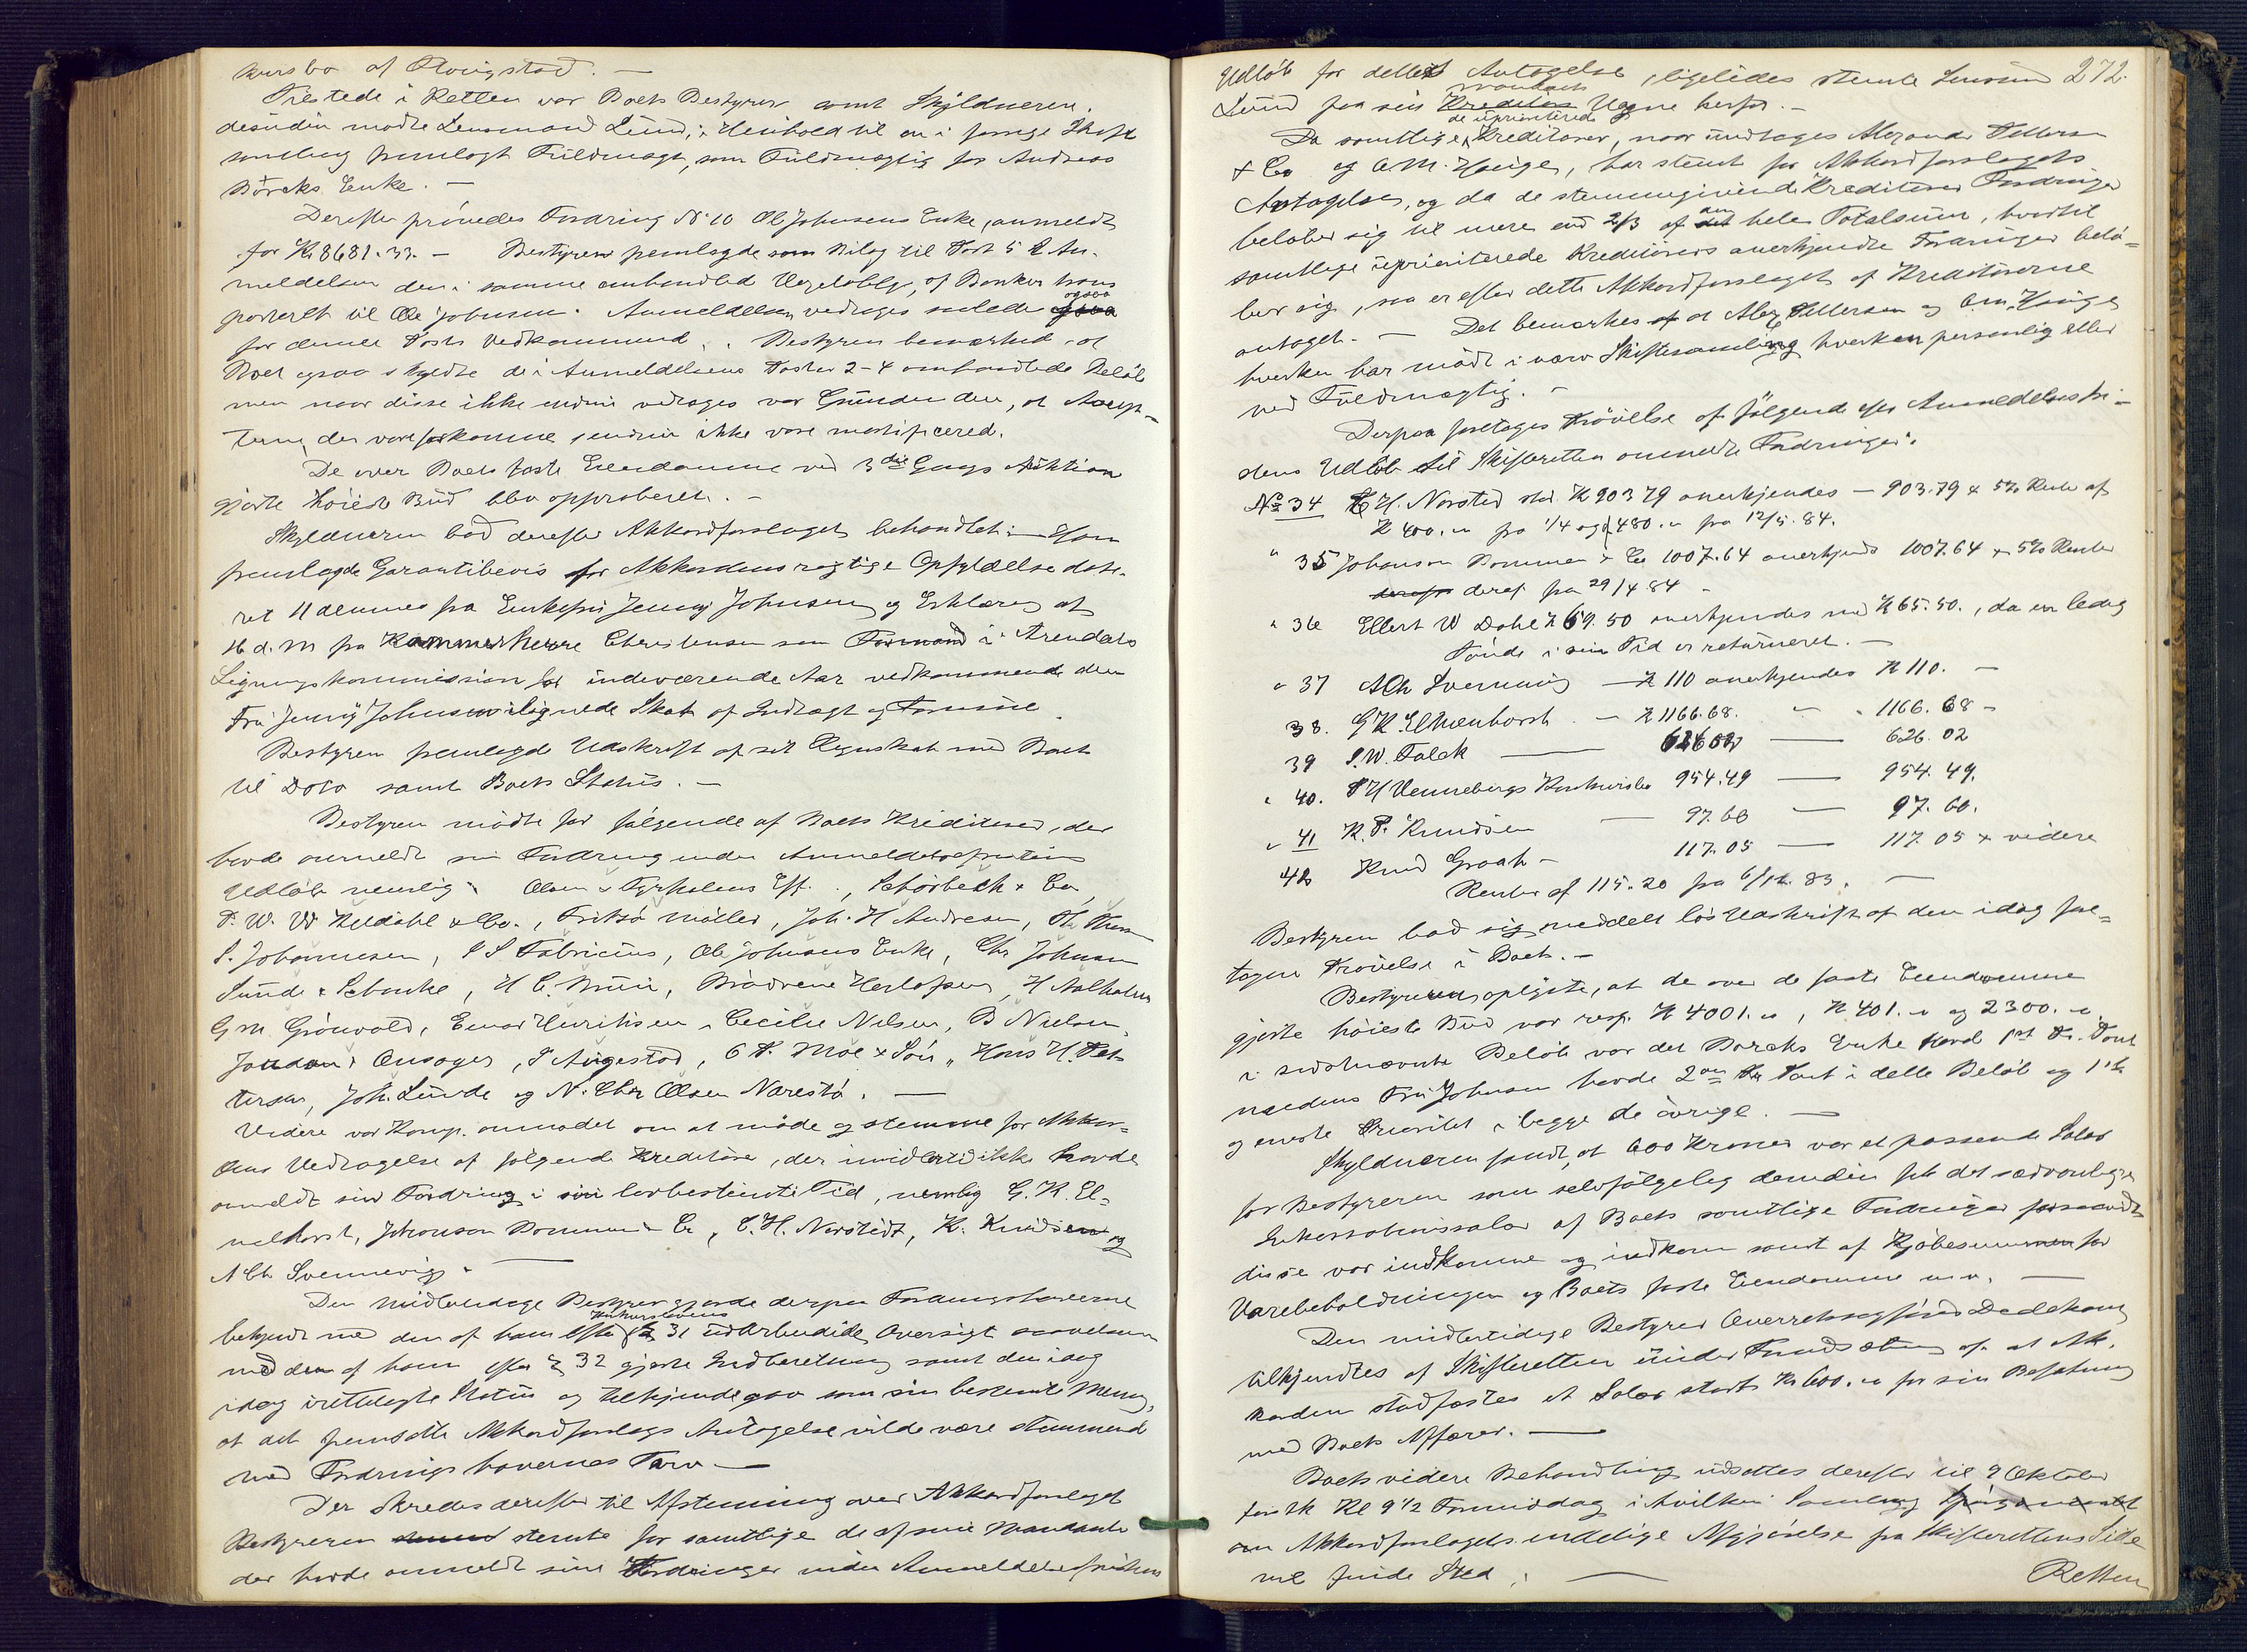 kursbo af Rougstad. —
Tilstede i Retten var Boets Bestyrer samt Skyldneren.
desuden mødte Lensmand Lund, i Henhold til en i forrige Skifte
samling fremlagt Fuldmagt, som Fuldmægtig for Andreas
Børcks Enke. —
Derefter prøvedes Fordring N° 10 Ole Johnsens Enke, anmeldt
for Kr 8681.33. — Bestyreren fremlagde som Bilag til Post 5 i An-
meldelsen den i samme omhandled Vexelobl., af Banken trans
porteret til Ole Johnsen. Anmeldelsen vedtoges saaledes ogsaa
for denne Posts Vedkommend. Bestyreren bemærked, at
Boet ogsaa skyldte de i Anmeldelsens Poster 2-4 omhandlede Beløb
men naar disse ikke endnu vedtoges var Grunden den, at Accep-
terne, der vare forkomne, endnu ikke vare mortificered.
De over Boets faste Eiendomme ved 3die Gangs Auktion
gjorte høieste Bud blev approberet. —
Skyldneren bad derefter Akkordforslaget behandlet: — Han
fremlagde Garantibevis for Akkordens rigtige Opfyldelse date-
ret 11 dennes fra Enkefru Jenny Johnsen og Erklæring af
16 d. M fra Kammerherre Christensen som Formand i Arendals
Ligningskommission for indeværende Aar vedkommende den
Fru Jenny Johnsen ilignede Skat af Indtægt og Formue.
Bestyreren fremlagde Udskrift af sit Regnskab med Boet
til Dato samt Boets Status. —
Bestyreren mødte for følgende af Boets Kreditorer, der
havde anmeldt sin Fordring inden Anmeldelsesfristens
Udløb nemlig: Olsen & Fyrholens Eff., Schørbeck & Co,
P. W. W Kildahl & Co., Fritzø Møller, Joh. H Andresen, Th. Thorsen
S. Johannesen, I S Fabricius, Ole Johnsens Enke, Chr Johnsen
Sunde & Schanke, H C. Muri, Brødrene Herlofsen, H Aalholm
G M. Grönvold, Einar Henriksen, Cecilie Nilsen, B Nielsen,
Jordan & Onsager, P Augestad, O P. Moe & Søn, Hans H. Pet-
tersen, Joh. Lunde og N. Chr Olsen Narestø. —
Videre var Komp. anmodet om at møde og stemme for Akkor-
dens Vedtagelse af følgende Kreditorer, der imidlertid ikke havde
anmeldt sin Fordring i sin lovbestemte Tid, nemlig G. K. El-
nelhorst, Johanson Bommen & Co, C. H. Norstedt, K. Knudsen og
A Ch Svennevig. —
Den midlertidige Bestyrer gjorde derpaa Fordringshaverne
Konkurslovens
bekjendt med den af ham efter § 31 udarbeidede Oversigt saavelsom
med den af ham efter § 32 gjorte Indberetning samt den idag
idag irettelagte Status og tilkjendegav som sin bestemte Mening,
at det fremsatte Akkordforslags Antagelse vilde være stemmende
med Fordringshavernes Tarv. —
Der skredes derefter til Afstemning over Akkordforslaget
Bestyreren stemte for samtlige de af sine Mandanter
der havde anmeldt sine Fordringer inden Anmeldelsesfristens
Udløb for dettes Antagelse, ligeledes stemte Lensmand 272.
Mandants
Lund paa sin Kreditors Vegne herfor. —
de uprioriterede
Da samtlige Kreditorer, naar undtages Alexander Pettersen
& Co og O. M. Hauge, har stemt for Akkordforslagets
Antagelse, og da de stemmegivende Kreditorers Fordringer
beløber sig til mere end 2/3 af den hele Totalsum, hvortil
samtlige uprioriterede Kreditorers anerkjendte Fordringer belø-
ber sig, saa er efter dette Akkordforslaget af Kreditorerne
antaget. — Det bemærkes at Alex Pettersen og O.M. Hauge
hverken har mødt i nærv Skiftesamling hverken personlig eller
ved Fuldmægtig. —
Derpaa foretoges Prøvelse af følgende efter Anmeldelsesfri-
stens Udløb til Skifteretten anmeldte Fordringer:
N° 34 C H. Norsted stor K 903 79 anerkjendes — 903.79 & 5% Rente af
K 400. " fra 1/4 og af 480. " fra 12/5. 84.
" 35 Johanson Bommen & Co 1007.64 anerkjends 1007.64 & 5% Renter
deraf fra 29/4 84 —
" 36 Ellert W Dahl K 69.50 anerkjendes med K 65.50., da en ledig
Tønde i sin Tid er returneret. —
" 37 A Ch Svennevig — K 110 anerkjendes K 110. —
38. G K Elnenhorst — K 1166.68. " " 1166.68 —
39 S. W. Falck — 626 02 — 626. 02
" 40. P H Vennebergs Konkursbo 954.49 — 954. 49.
" 41 K. P. Knudsen — 97.60 — 97. 60.
42 Knud Graah — 117.05 — 117. 05 & videre
Renter af 115.20 fra 6/12. 83. —
Bestyreren bad sig meddelt løs Udskrift af den idag fore-
tagne Prøvelse i Boet. —
Bestyreren oplyste, at de over de faste Eiendomme
gjorte høieste Bud var resp. K 4001. ", K 401. " og 2300. ".
i sidstnævnte Beløb var det Børcks Enke havd 1st Pr. Pant
medens Fru Johnsen havde 2den Pr Pant i dette Beløb og 1ste
og eneste Prioritet i begge de øvrige. —
Skyldneren fandt, at 600 Kroner var et passende Salær
for Bestyreren som selvfølgelig desuden fik det sædvanlige
Inkassationssalær af Boets samtlige Fordringer forsaavidt
disse var indkomne og indkom samt af Kjøbesummen for
Varebeholdningen og Boets faste Eiendomme m.v. —
Den midlertidige Bestyrer Overretssagfører Dedekam
tilkjendtes af Skifteretten under Forudsætning af at Ak-
korden stadfæstes et Salær stort K 600. " for sin Befatning
med Boets Affærer. —
Boets videre Behandling udsattes derefter til 9 Oktober
førstk Kl 9 1/2 Formiddag i hvilken Samling
om Akkordforslagets endelige Afgjørelse fra Skifterettens Side
vil finde Sted. —
Retten